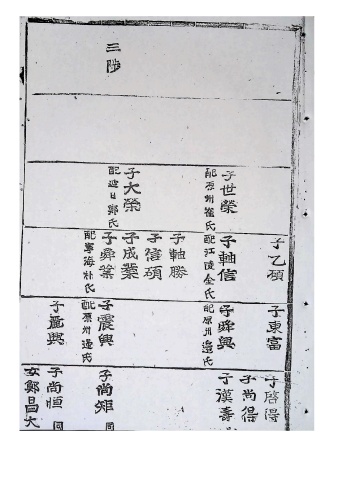 三陟
子世榮
配原州崔氏
子大榮
配迎日鄭氏
子乙碩
子軸信
配江陵金氏
子軸勝
子信碩
子成業
子舜業
配寧海朴氏
子東富
子舜興
配原州邊氏
子震興
配原州邊氏
子麗興
子啓得
子尚得
子漢壽
子尚矩
子尚恒
女鄭昌大